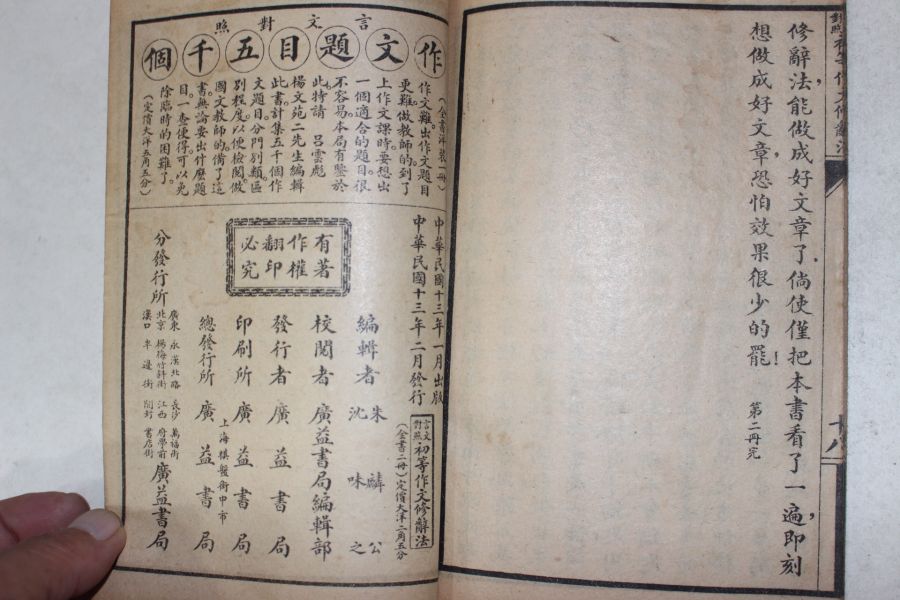 修辭法，能做成好文章了．倘使僅把本書看了一遍，即刻
想做成好文章，恐怕效果很少的罷！
第二冊完
十八
言文對照
作文題目五千個
（全書洋裝一冊）
作文難出作文題目
更難做教師的到了
上作文課時要想出
一個適合的題目很
不容易本局有鑒於
此特請 呂雲彪
楊文苑二先生編輯
此書計集五千個作
文題目分門別類區
別程度以便檢閱做
國文教師的備了這
書無論要出什麼題
目一查便得可以免
除臨時的困難了
（定價大洋五角五分）
中華民國十三年一月出版
中華民國十三年二月發行
言文對照 初等作文修辭法
（全書二冊）定價大洋二角五分
有著作權翻印必究
編輯者 朱麟公 沈味之
校閱者 廣益書局編輯部
發行者 廣益書局
印刷所 廣益書局
上海棋盤街中市
總發行所 廣益書局
分發行所
廣東 永漢北路 長沙 萬福街
北京 楊梅竹斜街 江西 府學前
漢口 半邊街 開封 書店街
廣益書局